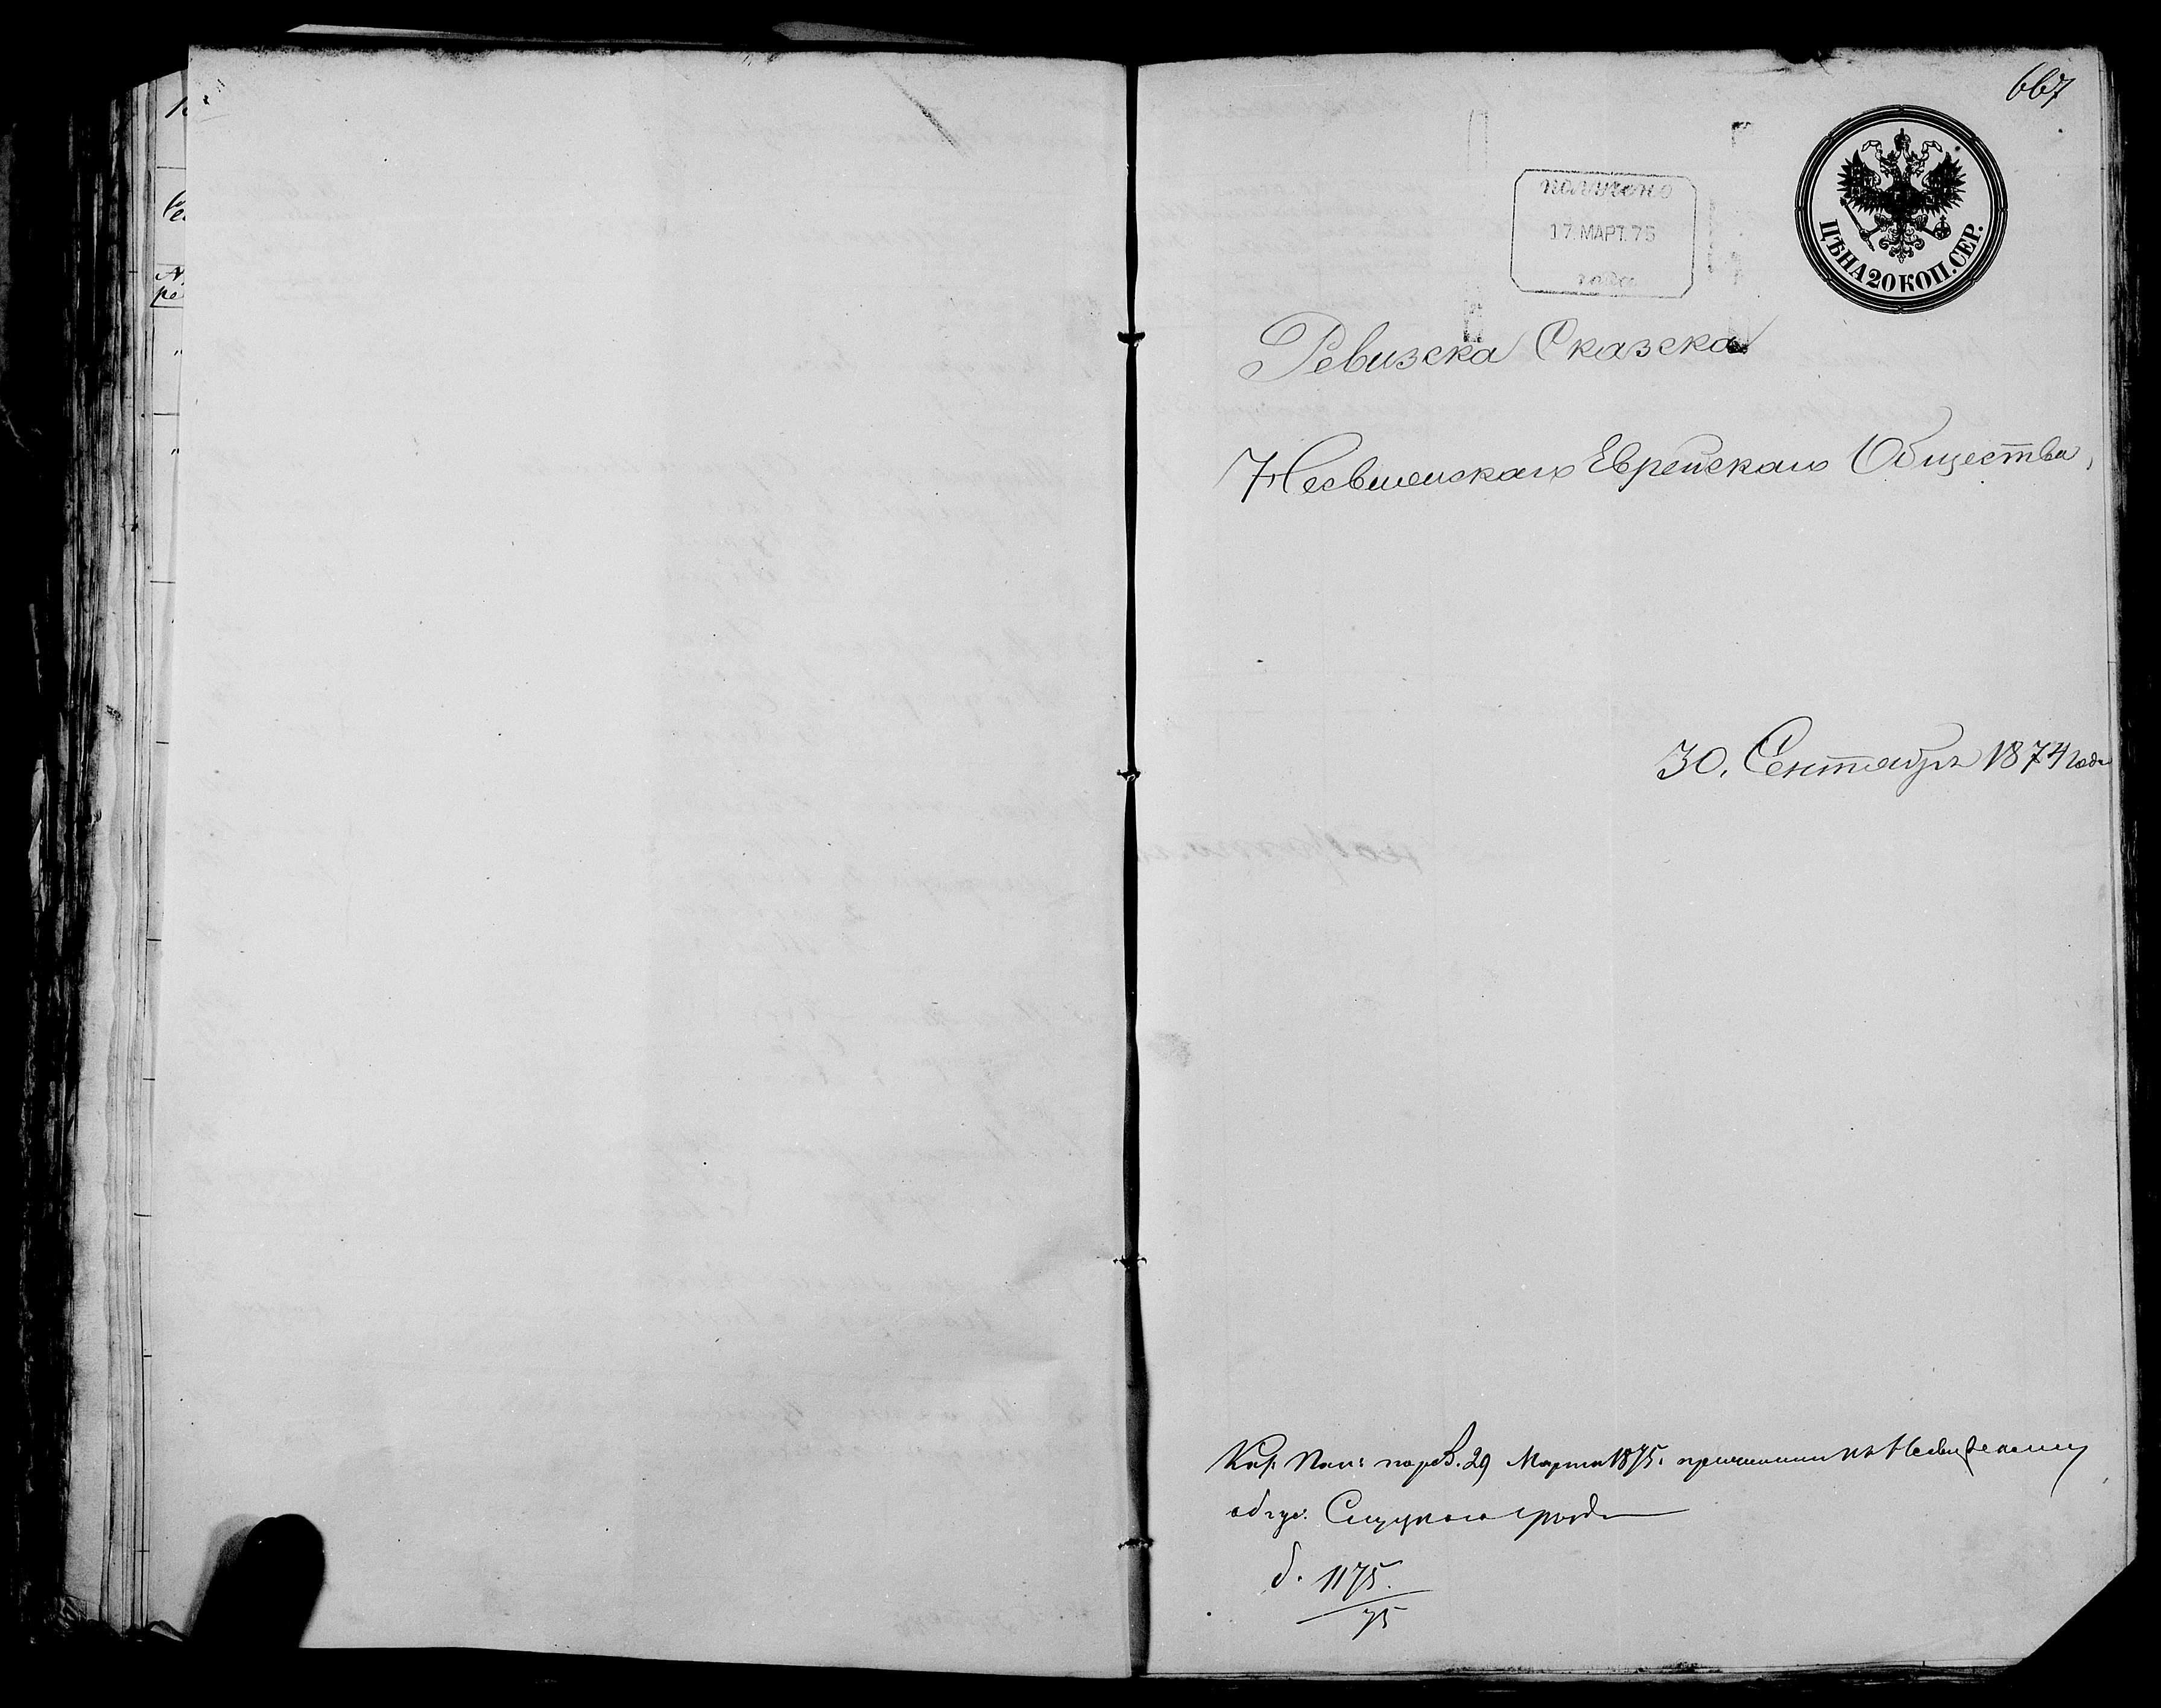 667
получено
17. МАРТ. 75
года
ЦѢНА 20 КОП. СЕР.
Ревизска Сказска
Несвижскаго Еврейскаго Общества,
30. Сентября 1874 года
Каз. Пал: 29 Марта 1875. причислити къ Несвижскому
общ. Слуцкаго уезда
д. 1175.
75